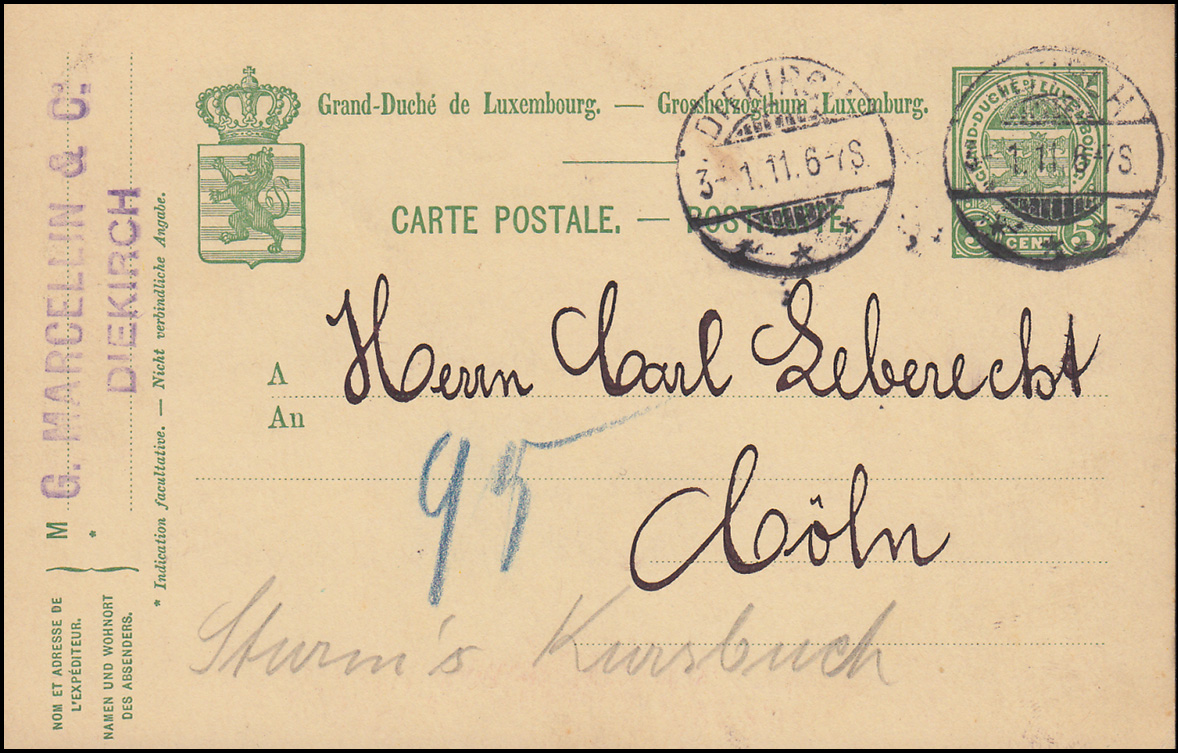 Grand-Duché de Luxembourg. — Grossherzogthum Luxemburg.
CARTE POSTALE. —
DIEKIRCH
3-.1.11.6-7S.
1.11.6-7S.
GRAND-DUCHÉ DE LUXEMBOURG
5 CENT 5
A
An
Herrn Carl Leberecht
Cöln
95
Sturm's Kursbuch
G. MARCELLIN & C.
DIEKIRCH
M
*
* Indication facultative. — Nicht verbindliche Angabe.
NOM ET ADRESSE DE
L'EXPÉDITEUR.
NAMEN UND WOHNORT
DES ABSENDERS.